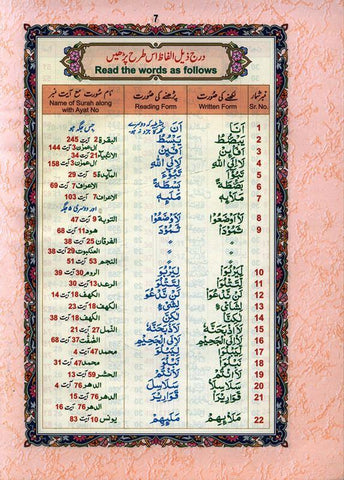 7
درج ذیل الفاظ اس طرح پڑھیں
Read the words as follows
نمبر شمار لکھنے کی صورت پڑھنے کی صورت نام سورت مع آیت نمبر
Sr. No. Written Form Reading Form Name of Surah along with Ayat No
1 اَنَا اَنَ جس جگہ ہو
2 يَبْصُۜطُ يَبْسُطُ البقرة 2 آیت 245
3 اَفَا۟ئِنْ اَفَئِنْ آل عمران 3 آیت 144
الانبیاء 21 آیت 34
4 لَا۟اِلَى اللهِ لَاِلَى اللهِ آل عمران 3 آیت 158
5 تَبُوْٓءَا۟ تَبُوْٓءَ المآئدة 5 آیت 29
6 بَصْۜطَةً بَسْطَةً الاعراف 7 آیت 69
7 مَلَا۟ئِهٖ مَلَئِهٖ الاعراف 7 آیت 103
8 لَا۟اَوْضَعُوْا لَاَوْضَعُوْا التوبة 9 آیت 47
9 ثَمُوْدَا۟ ثَمُوْدَ هود 11 آیت 68
〃 〃 الفرقان 25 آیت 38
〃 〃 العنکبوت 29 آیت 38
〃 〃 النجم 53 آیت 51
10 لِيَرْبُوَا۟ لِيَرْبُوَ الروم 30 آیت 39
11 لِتَتْلُوَا۟ لِتَتْلُوَ الرعد 13 آیت 30
12 لَنْ نَّدْعُوَا۟ لَنْ نَّدْعُوَ الکهف 18 آیت 14
13 لِشَا۟یْءٍ لِشَیْءٍ الکهف 18 آیت 23
14 لٰكِنَّا۟ لٰكِنَّ الکهف 18 آیت 38
15 لَا۟اَذْبَحَنَّهٗ لَاَذْبَحَنَّهٗ النمل 27 آیت 21
16 لَا۟اِلَى الْجَحِيْمِ لَاِلَى الْجَحِيْمِ الصّٰفّٰت 37 آیت 68
17 لِيَبْلُوَا۟ لِيَبْلُوَ محمد 47 آیت 4
18 نَبْلُوَا۟ نَبْلُوَ محمد 47 آیت 31
19 لَا۟اَنْتُمْ لَاَنْتُمْ الحشر 59 آیت 13
20 سَلٰسِلَا۟ سَلٰسِلَ الدهر 76 آیت 4
21 قَوَارِيْرَا۟ قَوَارِيْرَ الدهر 76 آیت 15
الدهر 76 آیت 16
22 مَلَا۟ئِهِمْ مَلَئِهِمْ یونس 10 آیت 83